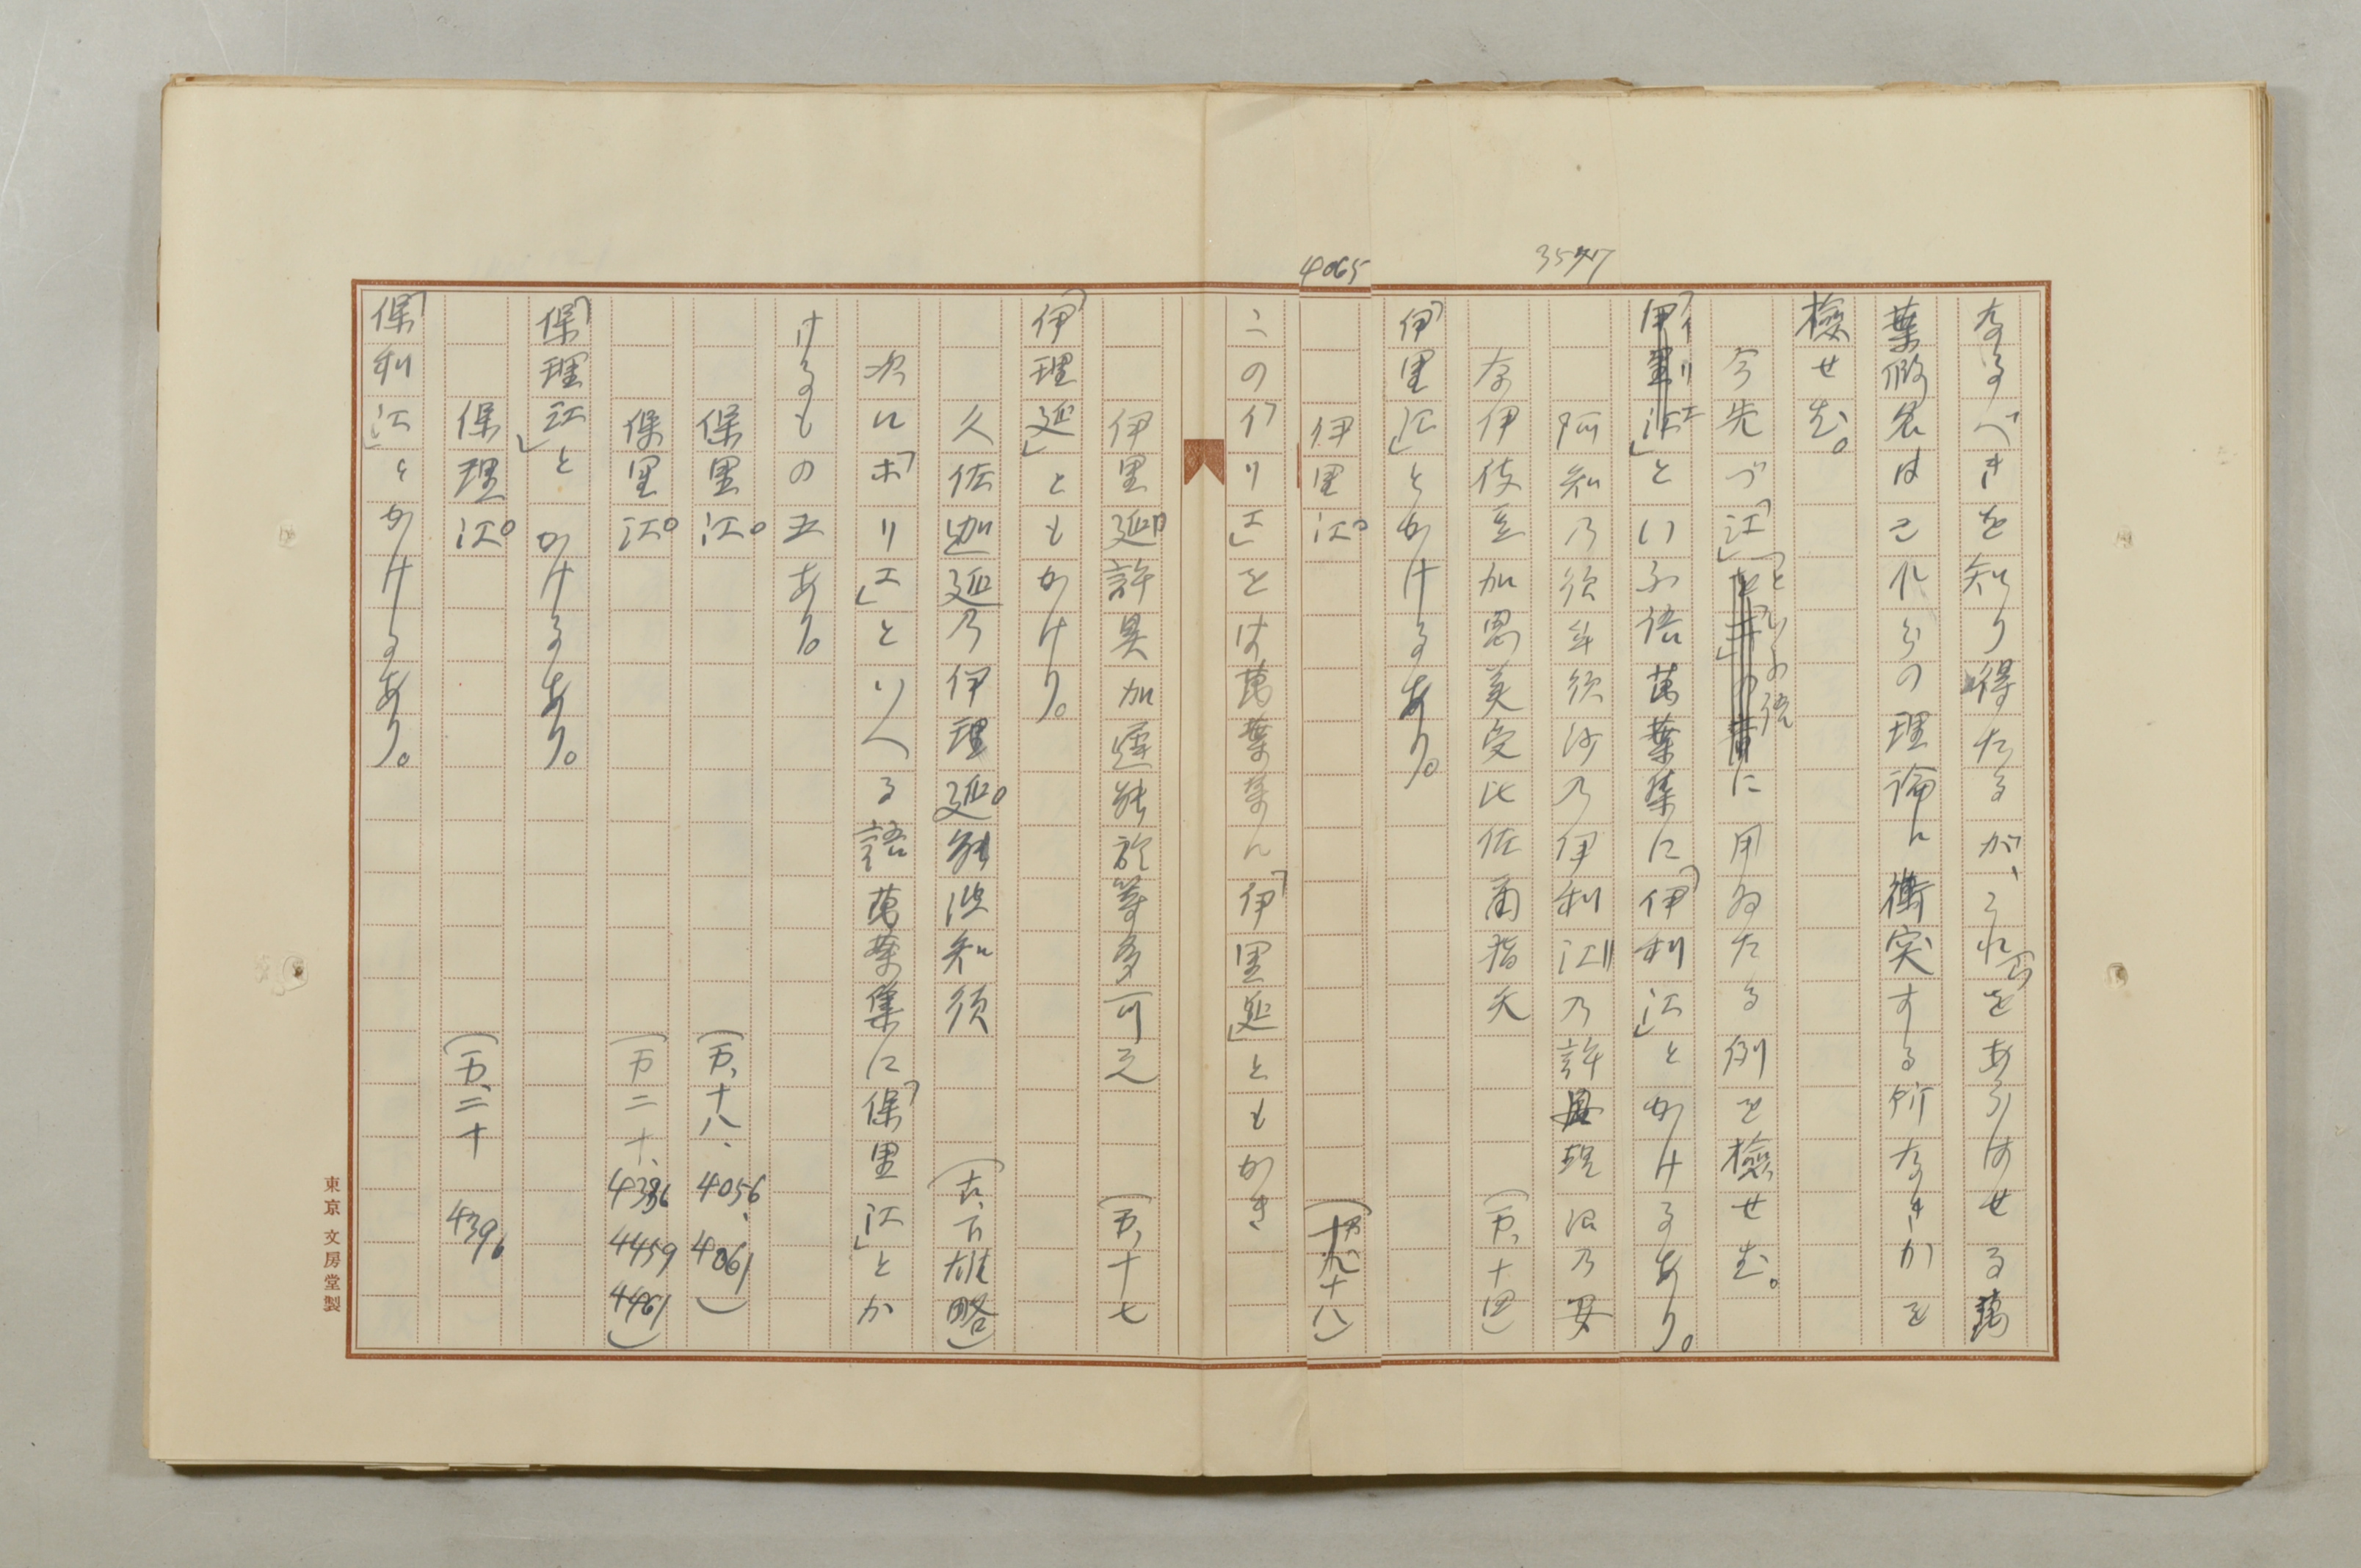 なるべきを知り得たるが、これをあらはせる萬
葉假名はこれらの理論に衝突する所なきかを
檢せむ。
今先づ「江」といふ語に用ゐたる例を檢せむ。
「イリエ」といふ語萬葉集に「伊利江」とかけるあり。
3547
阿知乃須牟須沙乃伊利江乃許母理沼乃安
奈伊伎豆加思美受比佐爾指天
(万、十四)
「伊里江」とかけるあり。
4065
伊里江
(万十八)
この「イリエ」をば萬葉集に「伊里延」ともかき
伊里延許具加遲能於等多可之
(万、十七
「伊理延」ともかけり。
久佐迦延乃伊理延能波知須
(古、下雄略)
次に「ホリエ」といへる語萬葉集に「保里江」とか
けるもの五あり。
保里江
(万、十八、4056、4061)
保里江
(万二十、4336 4459 4461)
「保理江」とかけるあり。
保理江
(万、二十 4396
「保利江」とかけるあり。
東京 文房堂製